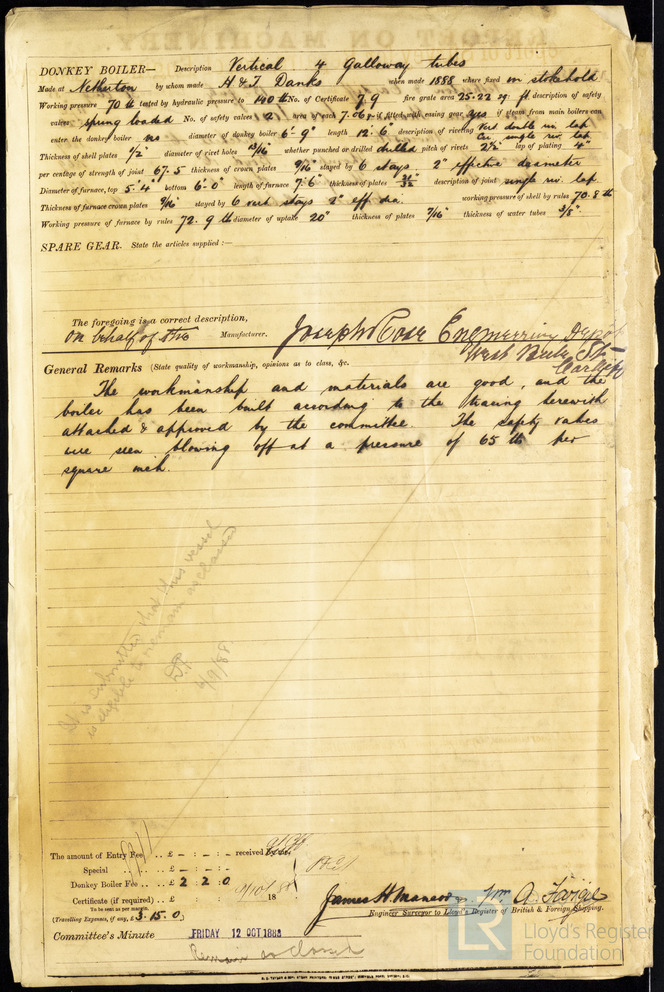 DONKEY BOILER— Description Vertical 4 Galloway tubes
Made at Netherton by whom made H & T Danks when made 1888 where fixed in stokehold
Working pressure 70 lb tested by hydraulic pressure to 140 lb No. of Certificate 79 fire grate area 25.22 sq. ft description of safety
valves spring loaded No. of safety valves 2 area of each 7.06 if fitted with easing gear yes if steam from main boilers can
enter the donkey boiler no diameter of donkey boiler 6'-9" length 12.6 description of riveting Vert double riv. lap
Cir. single riv. lap
Thickness of shell plates 1/2" diameter of rivet holes 13/16" whether punched or drilled drilled pitch of rivets 2 1/2" lap of plating 4"
per centage of strength of joint 67.5 thickness of crown plates 9/16" stayed by 6 stays 2" effective diameter
Diameter of furnace, top 5'.4" bottom 6'-0" length of furnace 7'6" thickness of plates description of joint single riv. lap
Thickness of furnace crown plates 9/16" stayed by 6 vert stays 2" eff dia. working pressure of shell by rules 70.8 lb
Working pressure of furnace by rules 72.9 lb diameter of uptake 20" thickness of plates 7/16" thickness of water tubes 3/8"
SPARE GEAR. State the articles supplied:—
The foregoing is a correct description,
On behalf of the Manufacturer. Joseph Rose Engineering Depot
West Bute St
Cardiff
General Remarks (State quality of workmanship, opinions as to class, &c.
The workmanship and materials are good, and the
boiler has been built according to the tracing herewith
attached & approved by the committee. The safety valves
were seen blowing off at a pressure of 65 lb per
square inch.
It is submitted that this vessel
is eligible to remain as classed
6/9/88
The amount of Entry Fee .. £ - : - : - received by me
Special .. £ - : - : -
Donkey Boiler Fee .. £ 2 : 2 : 0
Certificate (if required) .. £ : : 18
To be sent as per margin
(Travelling Expenses, if any, £ 3.15.0)
James H. Mancor
Engineer Surveyor to Lloyd's Register of British & Foreign Shipping.
Committee's Minute FRIDAY 12 OCT 1888
Remain as classed
LR Lloyd's Register
Foundation